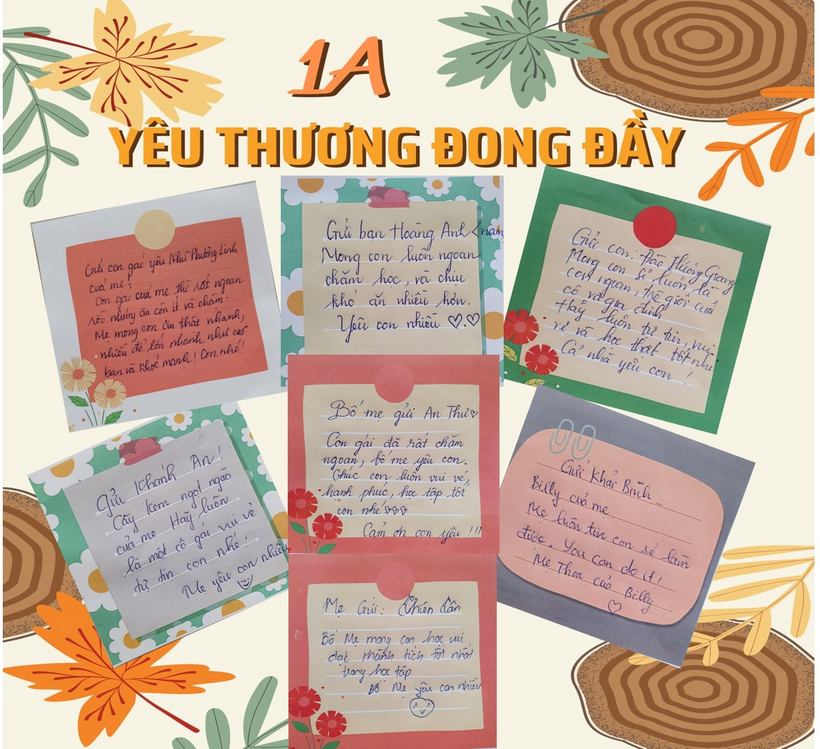 1A
YÊU THƯƠNG ĐONG ĐẦY
Gửi con gái yêu Như Phương Linh
của mẹ!
Con gái của mẹ thì rất ngoan
rồi nhưng ăn còn ít và chậm.
Mẹ mong con ăn thật nhanh,
nhiều để lớn nhanh như các
bạn và khoẻ mạnh! Con nhé!
Gửi bạn Hoàng Anh
Mong con luôn ngoan
chăm học, và chịu
khó ăn nhiều hơn.
Yêu con nhiều ♡.♡
Gửi con: Đào Hương Giang
Mong con sẽ luôn là
con ngoan, thế giới của
cô và gia đình
Hãy luôn tự tin, vui
vẻ và học thật tốt nhé
Cả nhà yêu con!
Gửi Khánh An!
Cây kem ngọt ngào
của mẹ. Hãy luôn
là một cô gái vui vẻ
tự tin con nhé!
Mẹ yêu con nhiều
Bố mẹ gửi An Thư♡
Con gái đã rất chăm
ngoan, bố mẹ yêu con,
Chúc con luôn vui vẻ,
hạnh phúc, học tập tốt
con nhé ♡♡♡
Cảm ơn con yêu !!!
Gửi Khải Bình
Billy của mẹ
Mẹ luôn tin con sẽ làm
được. You can do it!
Mẹ Thoa của Billy
♡
Mẹ Gửi: Thiên Ân
Bố Mẹ mong con học vui
đạt thành tích tốt nhất
trong học tập
Bố Mẹ yêu con nhiều